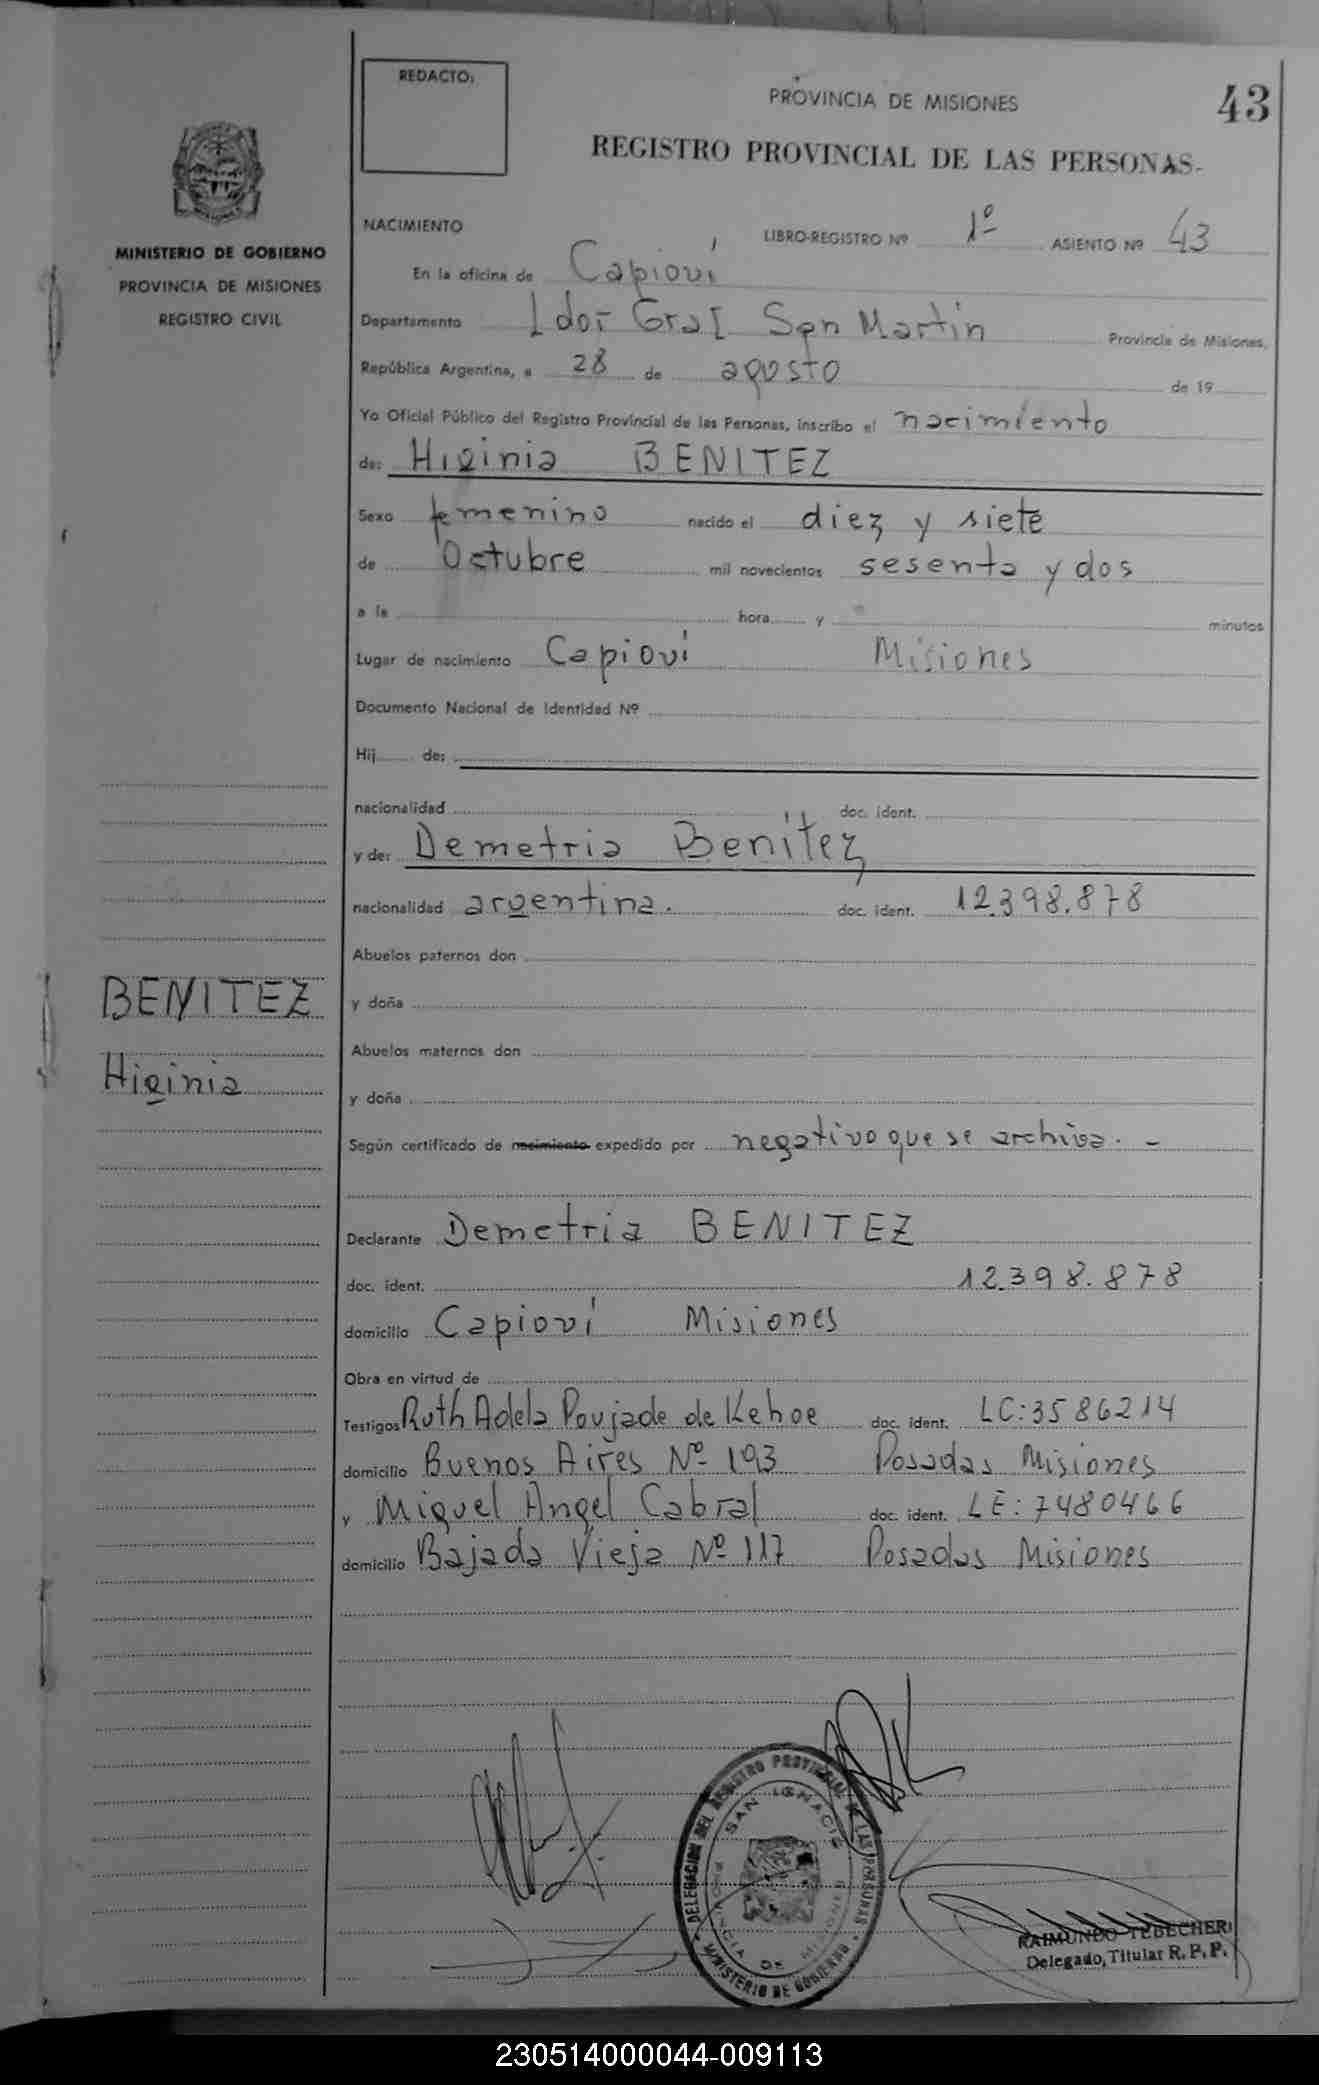 REDACTO:
PROVINCIA DE MISIONES
43
REGISTRO PROVINCIAL DE LAS PERSONAS.
MINISTERIO DE GOBIERNO
PROVINCIA DE MISIONES
REGISTRO CIVIL
NACIMIENTO
LIBRO-REGISTRO Nº 1º ASIENTO Nº 43
En la oficina de Capioví
Departamento Ldor Gral San Martin Provincia de Misiones,
República Argentina, a 28 de agosto de 19
Yo Oficial Público del Registro Provincial de las Personas, inscribo el nacimiento
de: Higinia BENITEZ
Sexo femenino nacido el diez y siete
de Octubre mil novecientos sesenta y dos
a la hora y minutos
Lugar de nacimiento Capioví Misiones
Documento Nacional de Identidad Nº
Hij de:
nacionalidad doc. ident.
y de: Demetria Benítez
nacionalidad argentina. doc. ident. 12.398.878
Abuelos paternos don
BENITEZ
y doña
Abuelos maternos don
Higinia
y doña
Según certificado de nacimiento expedido por negativo que se archiva. -
Declarante Demetria BENITEZ
doc. ident. 12.398.878
domicilio Capioví Misiones
Obra en virtud de
Testigos Ruth Adela Poujade de Kehoe doc. ident. LC: 3586214
domicilio Buenos Aires Nº 193 Posadas Misiones
y Miguel Angel Cabral doc. ident. LE: 7480466
domicilio Bajada Vieja Nº 117 Posadas Misiones
DELEGACION DEL REGISTRO PROVINCIAL DE LAS PERSONAS
SAN IGNACIO
PROVINCIA DE MISIONES
MINISTERIO DE GOBIERNO
RAIMUNDO TEBECHERI
Delegado, Titular R. P. P.
230514000044-009113